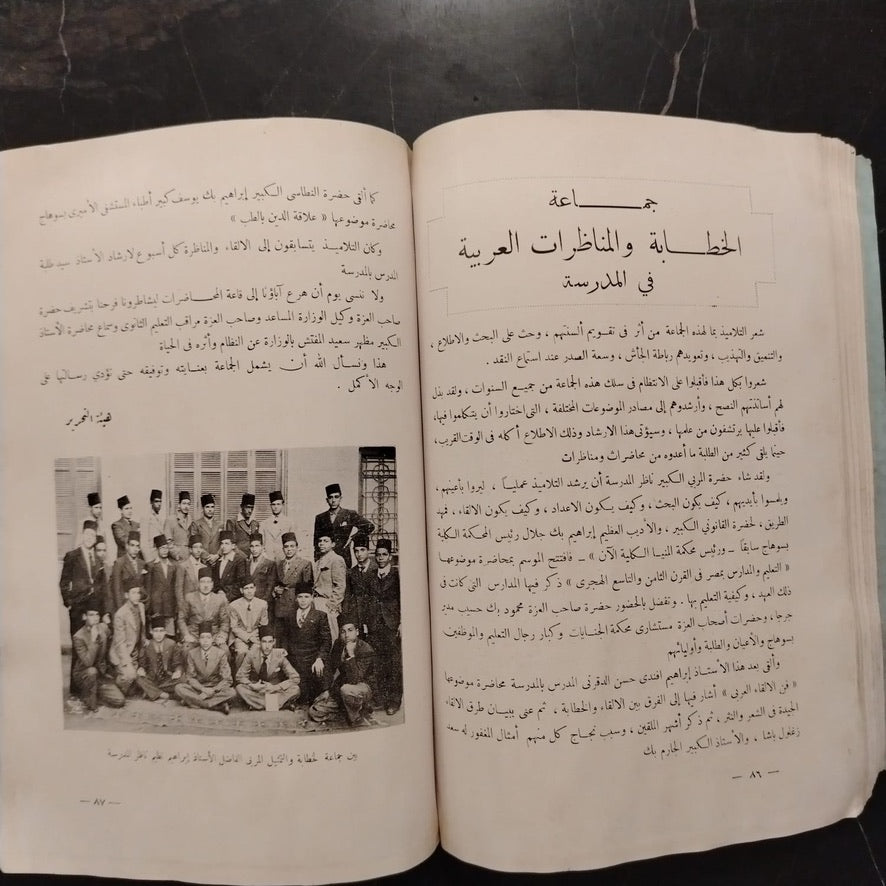 جماعة
الخطابة والمناظرات العربية
في المدرسة
شعر التلاميذ بما لهذه الجماعة من أثر فى تقويم ألسنتهم ، وحث على البحث والاطلاع ،
والتنميق والتهذيب ، وتعويدهم رباطة الجأش ، وسعة الصدر عند استماع النقد .
شعروا بكل هذا فأقبلوا على الانتظام فى سلك هذه الجماعة من جميع السنوات ، ولقد بذل
لهم أساتذتهم النصح ، وأرشدوهم إلى مصادر الموضوعات المختلفة ، التى اختاروا أن يتكلموا فيها ،
فأقبلوا عليها يرتشفون من علمها ، وسيؤتى هذا الارشاد وذلك الاطلاع أكله فى الوقت القريب ،
حينما يلقى كثير من الطلبة ما أعدوه من محاضرات ومناظرات
ولقد شاء حضرة المربى الكبير ناظر المدرسة أن يرشد التلاميذ عمليا ، ليروا بأعينهم ،
ويلمسوا بأيديهم ، كيف يكون البحث ، وكيف يكون الاعداد ، وكيف يكون الالقاء ، فمهد
الطريق ، لحضرة القانونى الكبير ، والأديب العظيم إبراهيم بك جلال رئيس المحكمة الكلية
بسوهاج سابقاً — ورئيس محكمة المنيا الكلية الآن » — فافتتح الموسم بمحاضرة موضوعها
« التعليم والمدارس بمصر فى القرن الثامن والتاسع الهجرى » ذكر فيها المدارس التى كانت فى
ذلك العهد ، وكيفية التعليم بها . وتفضل بالحضور حضرة صاحب العزة محمود بك حسيب مدير
جرجا ، وحضرات أصحاب العزة مستشارى محكمة الجنايات وكبار رجال التعليم والموظفين
بسوهاج والأعيان والطلبة وأوليائهم
وألقى بعد هذا الأستاذ إبراهيم افندى حسن المدرس بالمدرسة محاضرة موضوعها
« فن الالقاء العربى » أشار فيها إلى الفرق بين الالقاء والخطابة ، ثم عنى ببيان طرق الالقاء
الجيدة فى الشعر والنثر ، ثم ذكر أشهر الملقين ، وسبب نجاح كل منهم أمثال المغفور له سعد
زغلول باشا ، والأستاذ الكبير الجارم بك
— ٨٦ —
كما ألقى حضرة النطاسى الكبير إبراهيم بك يوسف كبير أطباء المستشفى الأميرى بسوهاج
محاضرة موضوعها « علاقة الدين بالطب »
وكان التلاميذ يتسابقون إلى الالقاء والمناظرة كل أسبوع لارشاد الأستاذ سيد طلبة
المدرس بالمدرسة
ولا ننسى يوم أن هرع آباؤنا إلى قاعة المحاضرات ليشاطرونا فرحتنا بتشريف حضرة
صاحب العزة وكيل الوزارة المساعد وصاحب العزة مراقب التعليم الثانوى وسماع محاضرة الأستاذ
الكبير مظهر سعيد المفتش بالوزارة عن النظام وأثره فى الحياة
هذا ونسأل الله أن يشمل الجماعة بعنايته وتوفيقه حتى تؤدي رسالتها على
الوجه الأكمل .
هيئة التحرير
بين جماعة الخطابة والتمثيل المربى الفاضل الأستاذ إبراهيم عظيم ناظر المدرسة
— ٨٧ —